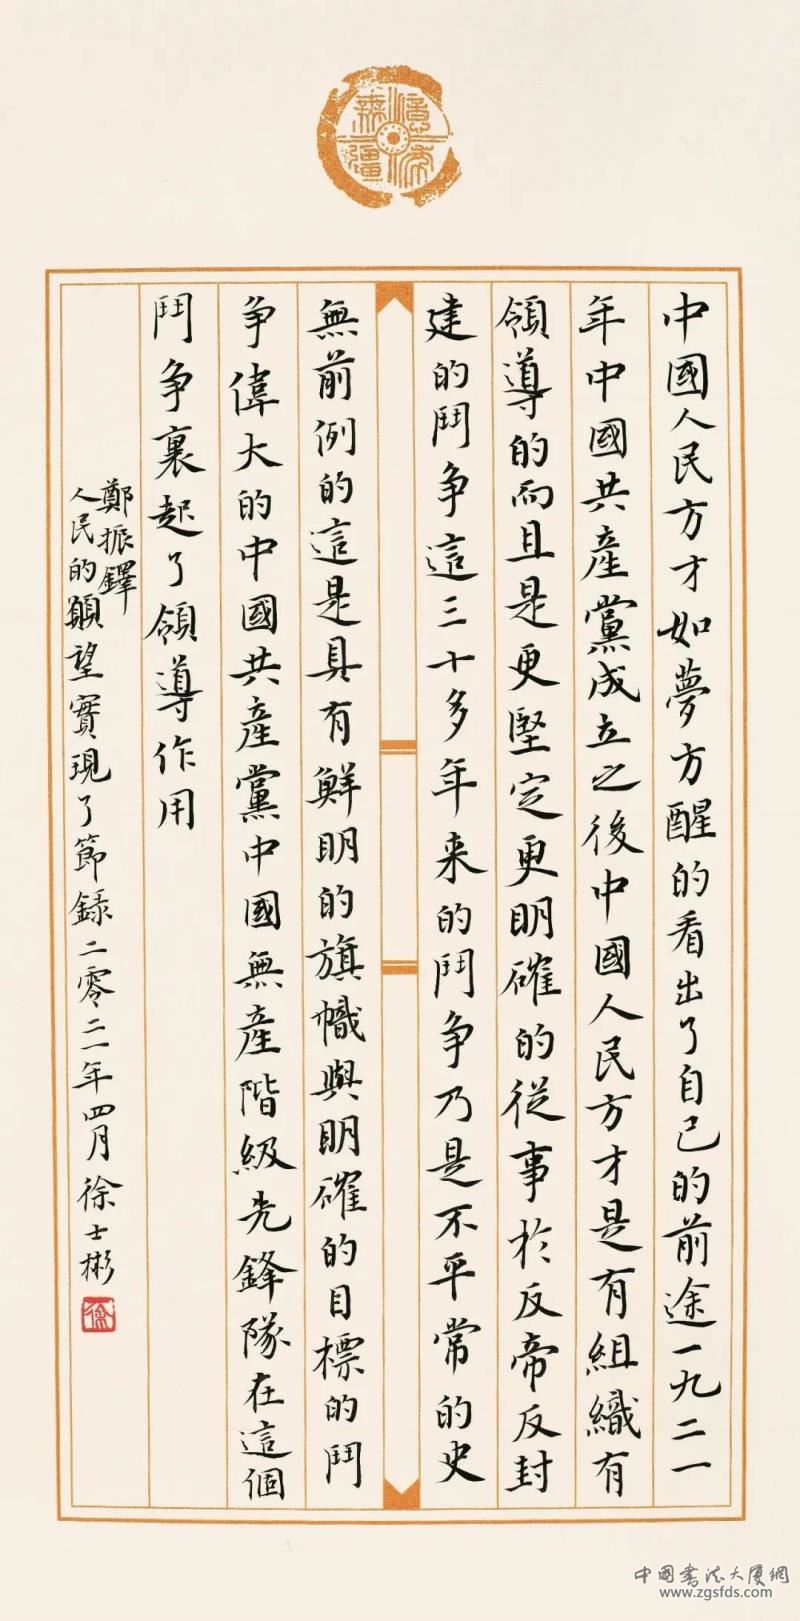 中國人民方才如夢方醒的看出了自己的前途一九二一
年中國共産黨成立之後中國人民方才是有組織有
領導的而且是更堅定更明確的從事於反帝反封
建的鬥争這三十多年来的鬥争乃是不平常的史
無前例的這是具有鮮明的旗幟與明確的目標的鬥
争偉大的中國共産黨中國無産階級先鋒隊在這個
鬥争裏起了領導作用
鄭振鐸
人民的願望實現了節録二零二一年四月徐士彬
徐
中國書法大廈網
www.zgsfds.com